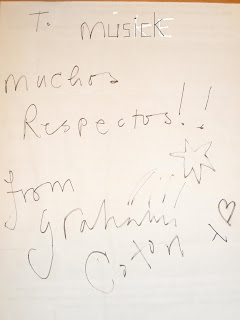 T. MUSICK
muchos
Respectos!!
from
Graham
Coxon x